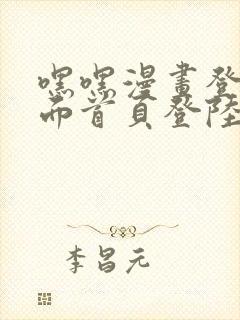 嘿嘿漫畫登
而首頁登陸
李昌元